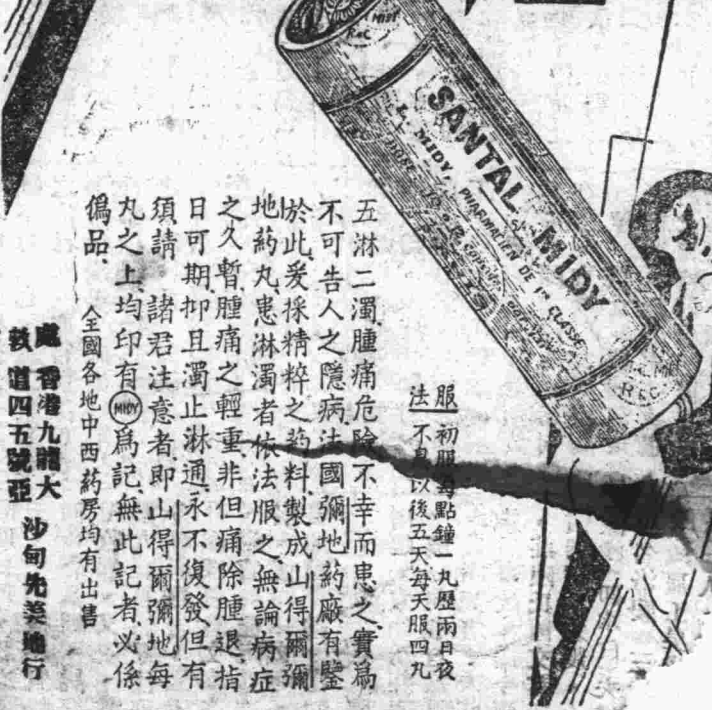 MIDY
R&C
SANTAL MIDY
L. MIDY, PHARMACIEN DE 1re CLASSE
PARIS
R&C
服法
初服每點鐘一丸歷兩日夜
不息以後五天每天服四丸
五淋二濁腫痛危險不幸而患之實爲
不可告人之隱病法國彌地葯廠有鑒
於此爰採精粹之葯料製成山得爾彌
地葯丸患淋濁者依法服之無論病症
之久暫腫痛之輕重非但痛除腫退指
日可期抑且濁止淋通永不復發但有
須請 諸君注意者卽山得爾彌地每
丸之上均印有MIDY爲記無此記者必係
僞品
全國各地中西葯房均有出售
處 香港九龍大沙甸先美地行
敦道四五號亞